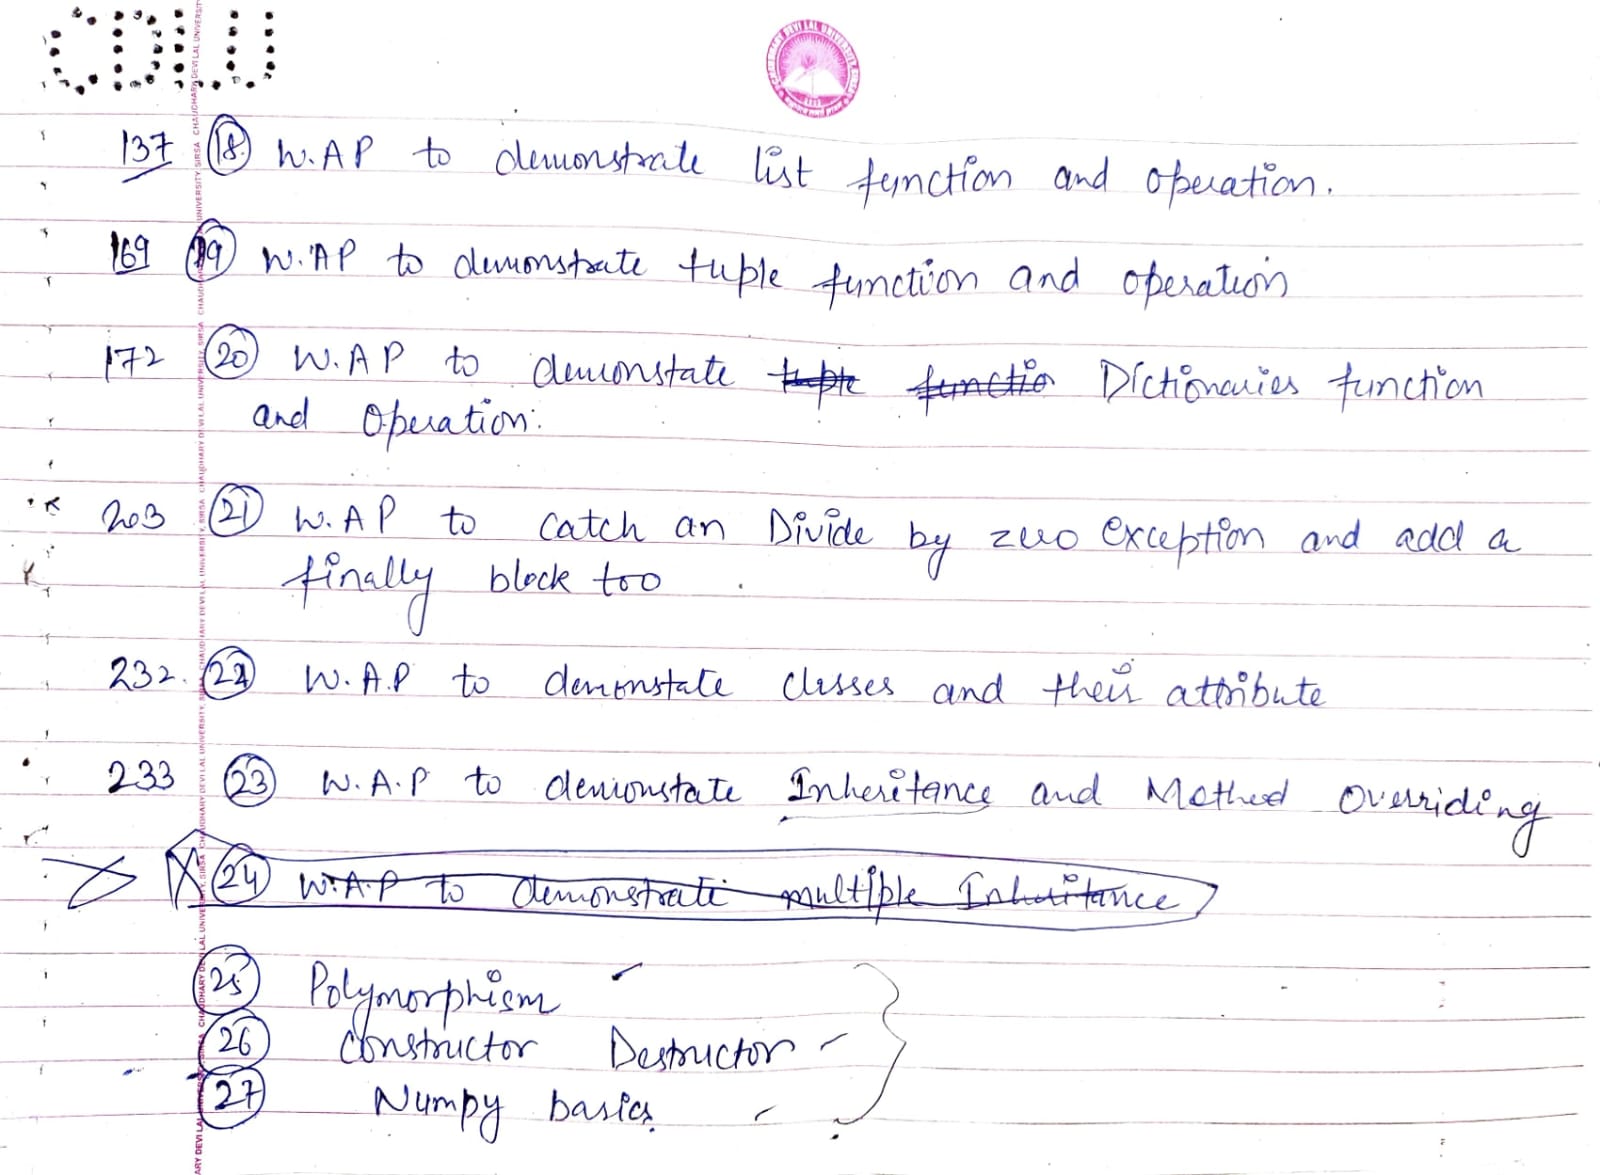 CDLU
CHAUDHARY DEVI LAL UNIVERSITY, SIRSA
137 18. W.AP to demonstrate list function and operation.
169 19 W.AP to demonstrate tuple function and operation
172 20 W.AP to demonstate tuple functio Dictionaries function
and Operation:
203 21 W.AP to Catch an Divide by zero Exception and add a
finally block too
232. 22 W.A.P to demonstate classes and their attribute
233 23 W.A.P to demonstate Inheritance and Method Overriding
24 W.A.P to demonstrate multiple Inheritance
25 Polymorphism
26 Constructor Destructor
27 Numpy basics